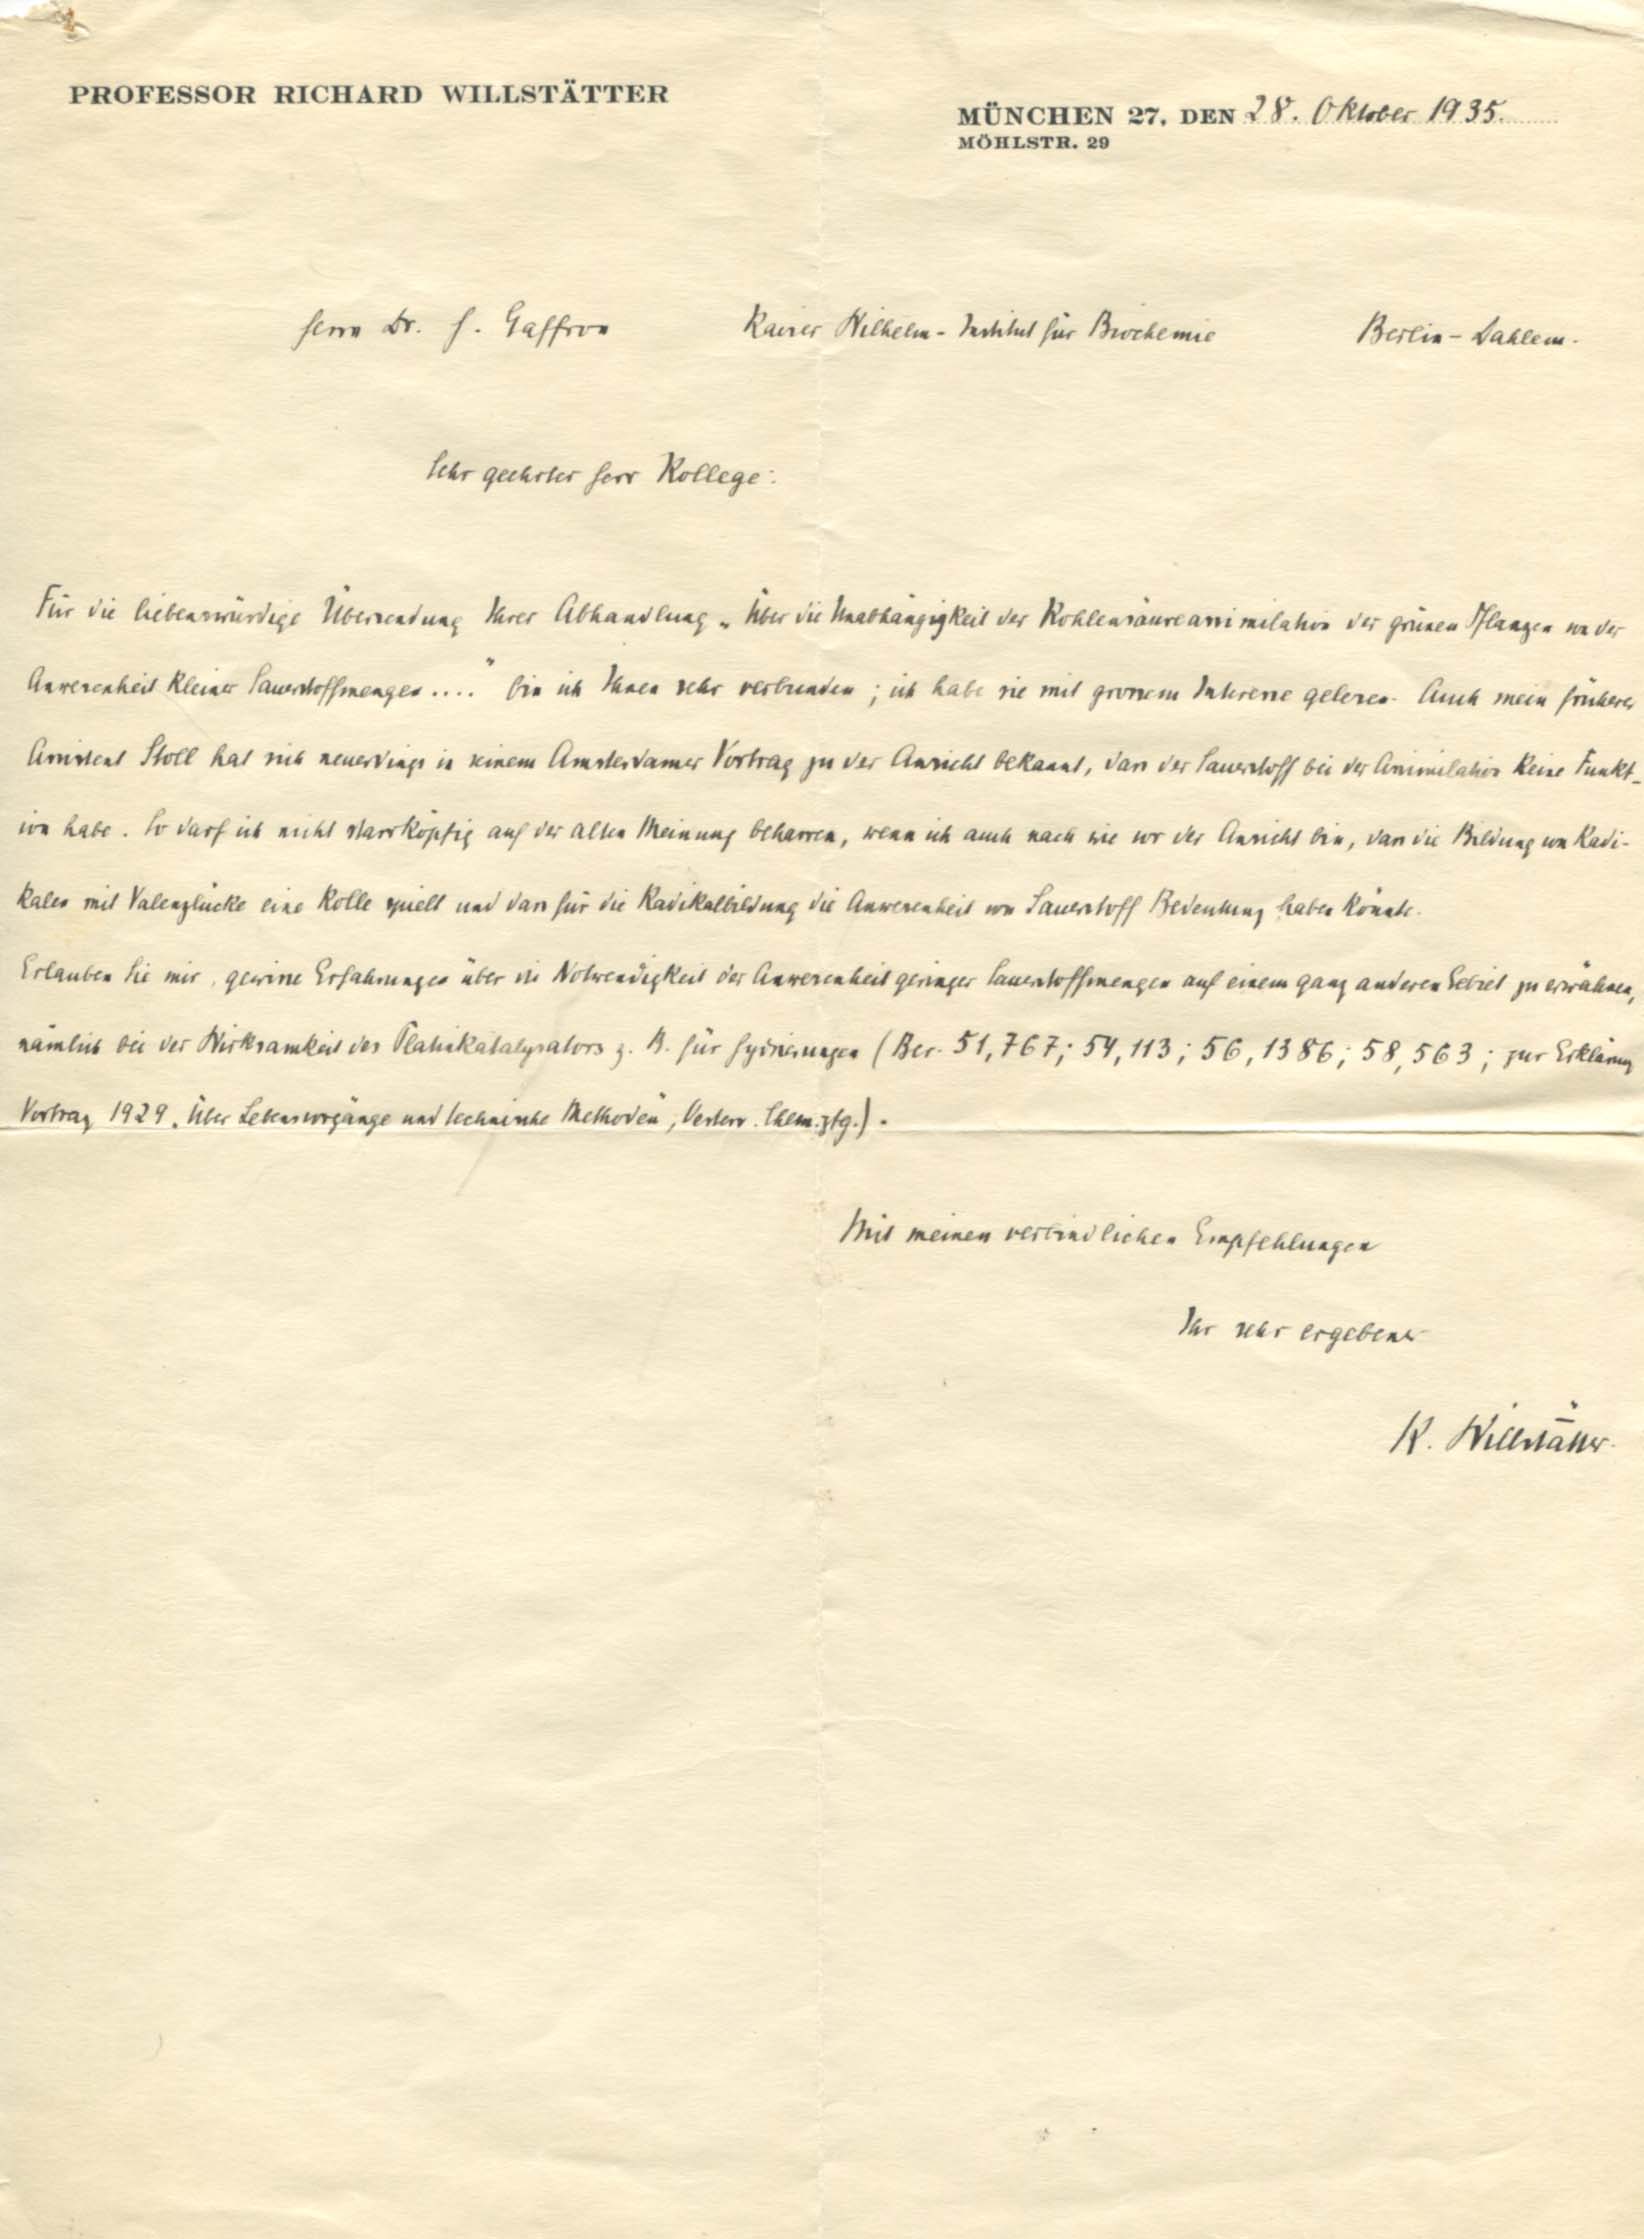 PROFESSOR RICHARD WILLSTÄTTER
MÜNCHEN 27, DEN 28. Oktober 1935.
MÖHLSTR. 29
Herrn Dr. H. Gaffron Kaiser Wilhelm-Institut für Biochemie Berlin-Dahlem.
Sehr geehrter Herr Kollege:
Für die liebenswürdige Übersendung Ihrer Abhandlung „Über die Unabhängigkeit der Kohlensäureassimilation der grünen Pflanzen von der
Anwesenheit kleiner Sauerstoffmengen ....“ bin ich Ihnen sehr verbunden; ich habe sie mit grossem Interesse gelesen. Auch mein früherer
Assistent Stoll hat sich neuerdings in seinem Amsterdamer Vortrag zu der Ansicht bekannt, dass der Sauerstoff bei der Assimilation keine Funkt-
ion habe. So darf ich nicht starrköpfig auf der alten Meinung beharren, wenn ich auch nach wie vor der Ansicht bin, dass die Bildung von Radi-
kalen mit Valenzlücke eine Rolle spielt und dass für die Radikalbildung die Anwesenheit von Sauerstoff Bedeutung haben könnte.
Erlauben Sie mir, gewisse Erfahrungen über die Notwendigkeit der Anwesenheit geringer Sauerstoffmengen auf einem ganz anderen Gebiet zu erwähnen,
nämlich bei der Wirksamkeit des Platinkatalysators z. B. für Hydrierungen (Ber. 51, 767; 54, 113; 56, 1386; 58, 563; zur Erklärung
Vortrag 1929 „Über Lebensvorgänge und technische Methoden“, Oesterr. Chem. Ztg.).
Mit meinen verbindlichen Empfehlungen
Ihr sehr ergebener
R. Willstätter.